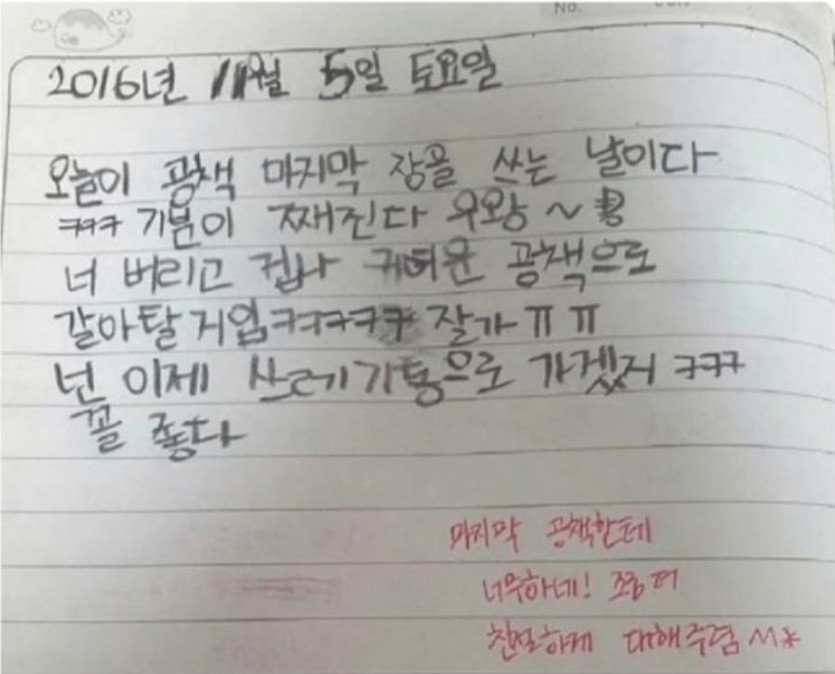 No.
2016년 11월 5일 토요일
오늘이 공책 마지막 장을 쓰는 날이다
ㅋㅋㅋ 기분이 째진다 우왕~
너 버리고 겁나 귀여운 공책으로
갈아탈거임ㅋㅋㅋㅋㅋ 잘가ㅠㅠ
넌 이제 쓰레기통으로 가겠지 ㅋㅋㅋ
꼴 좋다
마지막 공책한테
너무하네! 좀 더
친절하게 대해주렴^^*